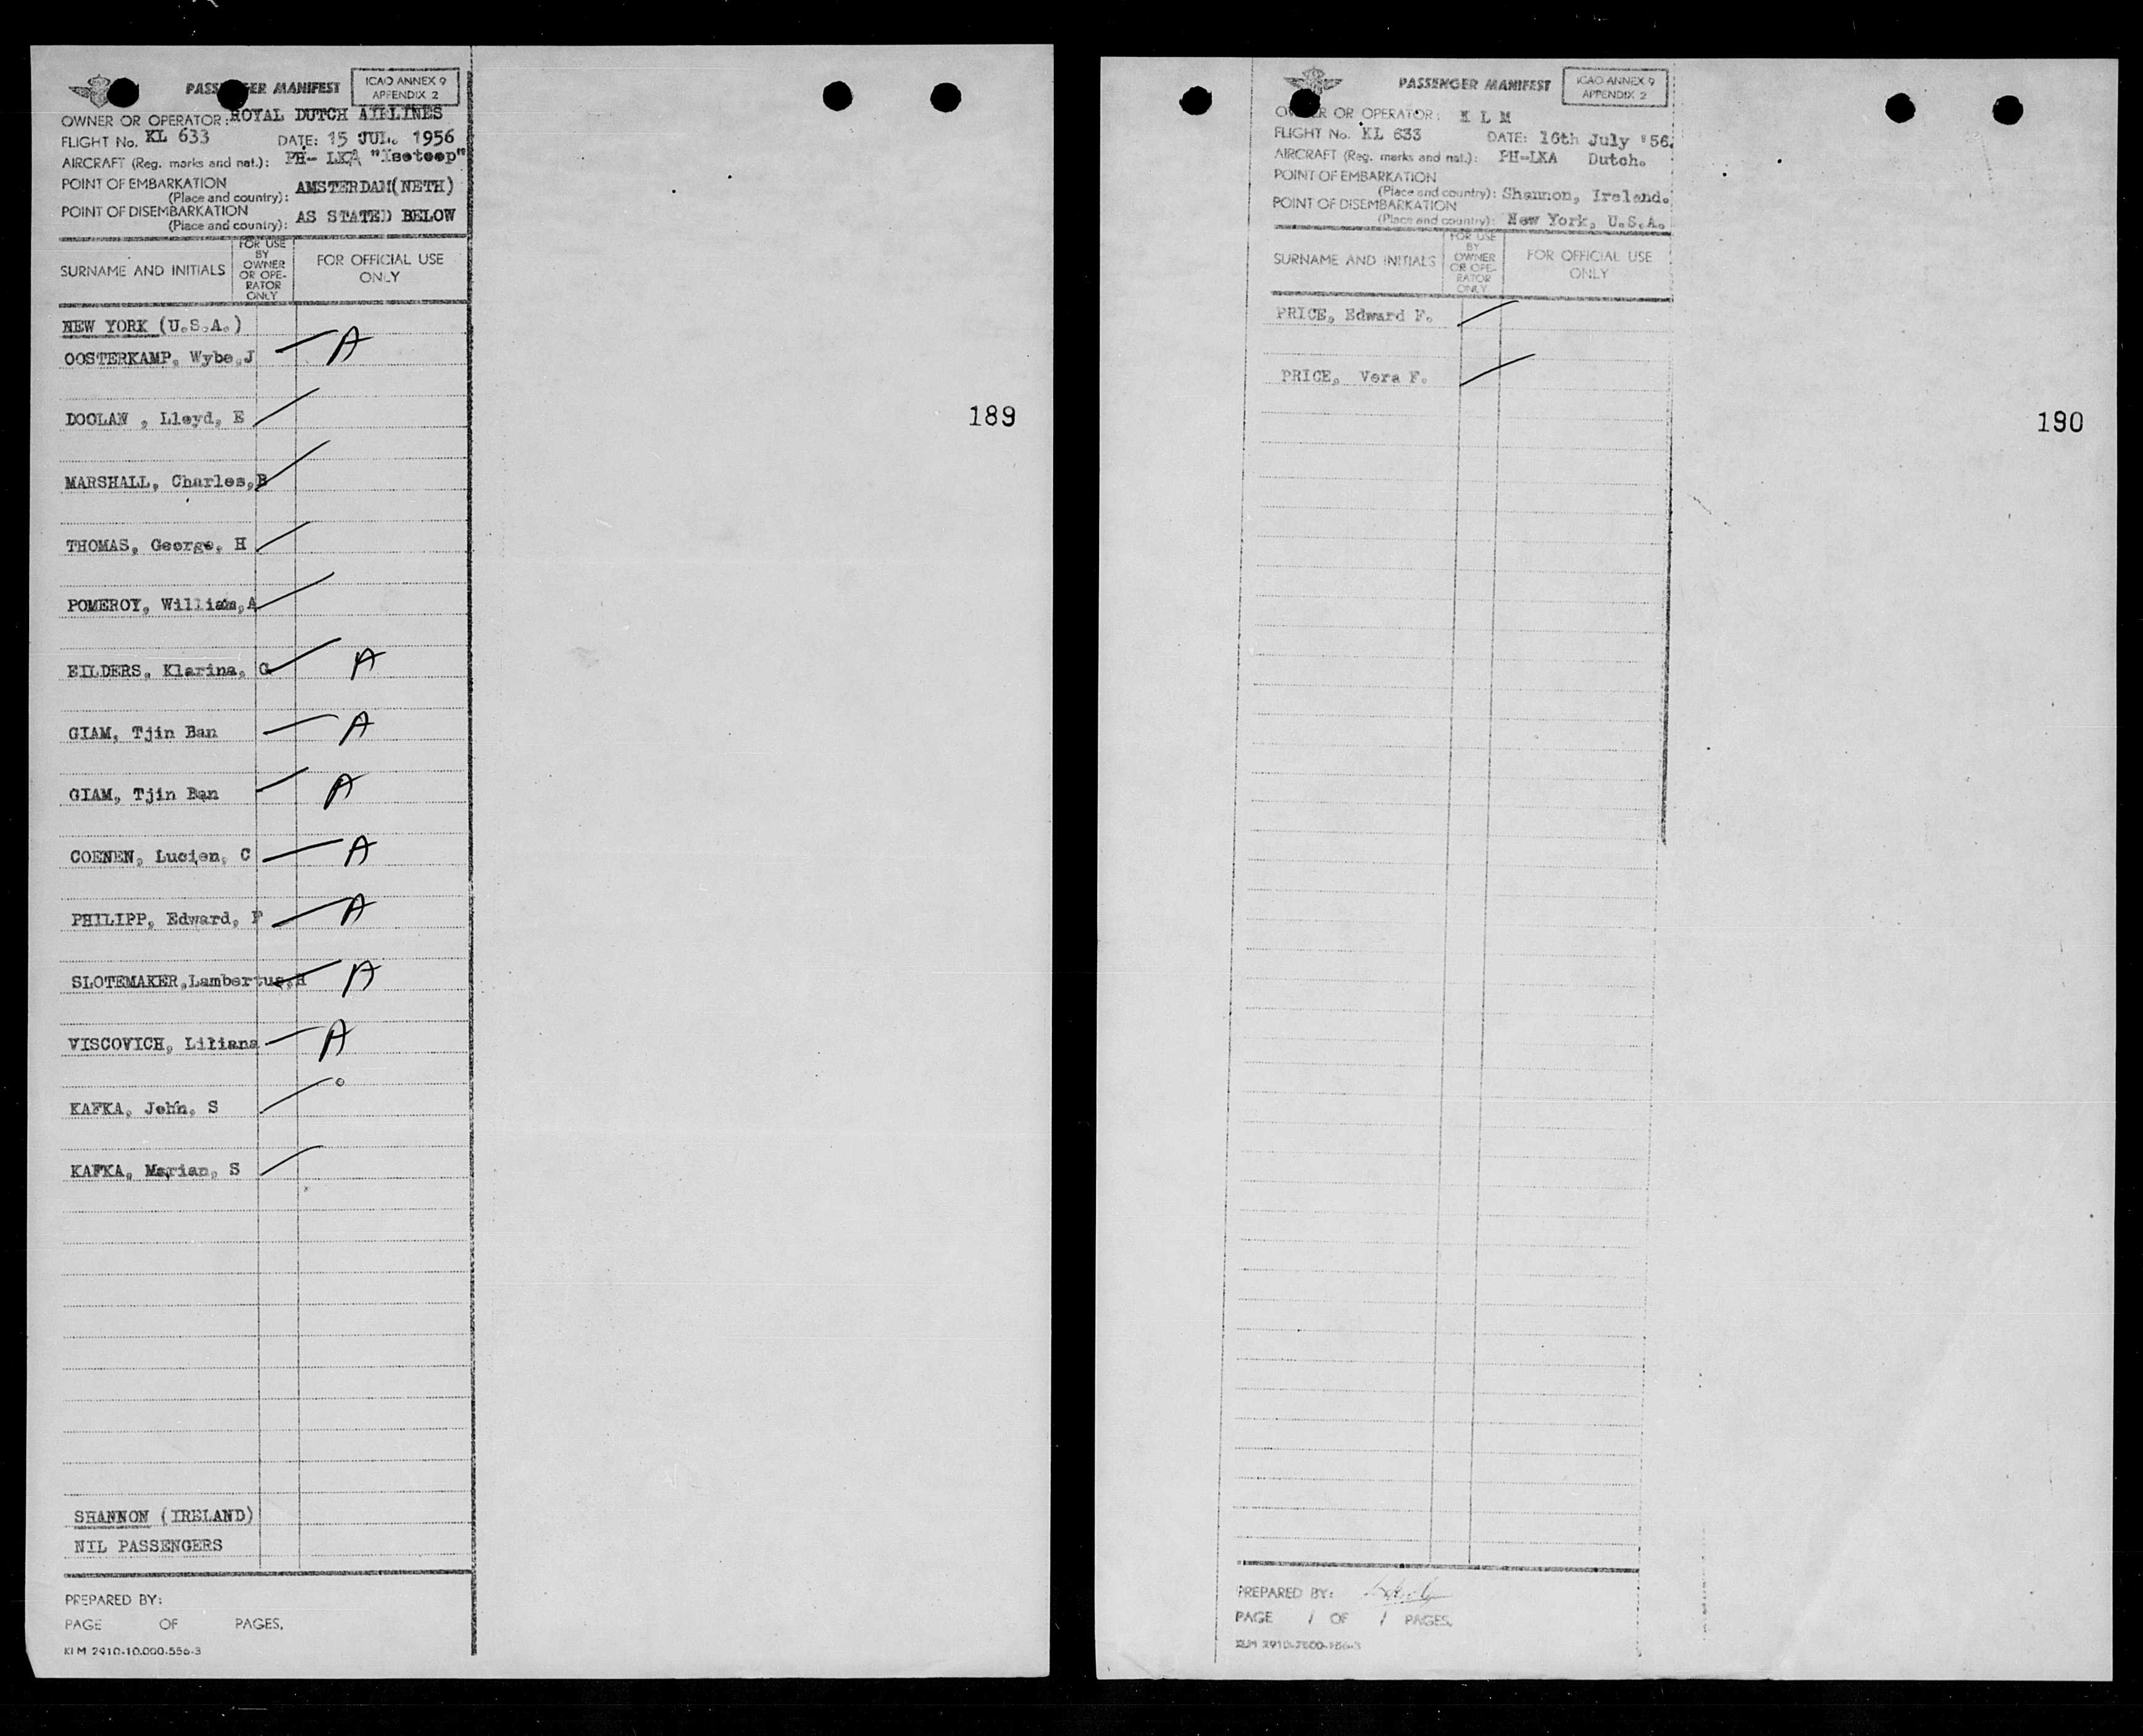 PASSENGER MANIFEST
ICAO ANNEX 9
APPENDIX 2
OWNER OR OPERATOR: ROYAL DUTCH AIRLINES
FLIGHT No. KL 633 DATE: 15 JUL. 1956
AIRCRAFT (Reg. marks and nat.): PH- LKA "Isotoop"
POINT OF EMBARKATION
(Place and country): AMSTERDAM(NETH)
POINT OF DISEMBARKATION
(Place and country): AS STATED BELOW
SURNAME AND INITIALS
FOR USE
BY
OWNER
OR OPE-
RATOR
ONLY
FOR OFFICIAL USE
ONLY
NEW YORK (U.S.A.)
OOSTERKAMP, Wybe,J A
DOOLAN , Lloyd, E
MARSHALL, Charles,B
THOMAS, George, H
POMEROY, William,A
EILDERS, Klarina, G A
GIAM, Tjin Ban A
GIAM, Tjin Ban A
COENEN, Lucien, C A
PHILIPP, Edward, F A
SLOTEMAKER,Lambertus,H A
VISCOVICH, Liliana A
KAFKA, John, S
KAFKA, Marian, S
SHANNON (IRELAND)
NIL PASSENGERS
PREPARED BY:
PAGE OF PAGES.
KLM 2910-10.000-556-3
189
PASSENGER MANIFEST
ICAO ANNEX 9
APPENDIX 2
OWNER OR OPERATOR: K L M
FLIGHT No. KL 633 DATE: 16th July '56.
AIRCRAFT (Reg. marks and nat.): PH-LKA Dutch.
POINT OF EMBARKATION
(Place and country): Shannon, Ireland.
POINT OF DISEMBARKATION
(Place and country): New York, U.S.A.
SURNAME AND INITIALS
FOR USE
BY
OWNER
OR OPE-
RATOR
ONLY
FOR OFFICIAL USE
ONLY
PRICE, Edward F.
PRICE, Vera F.
PREPARED BY:
PAGE 1 OF 1 PAGES.
190